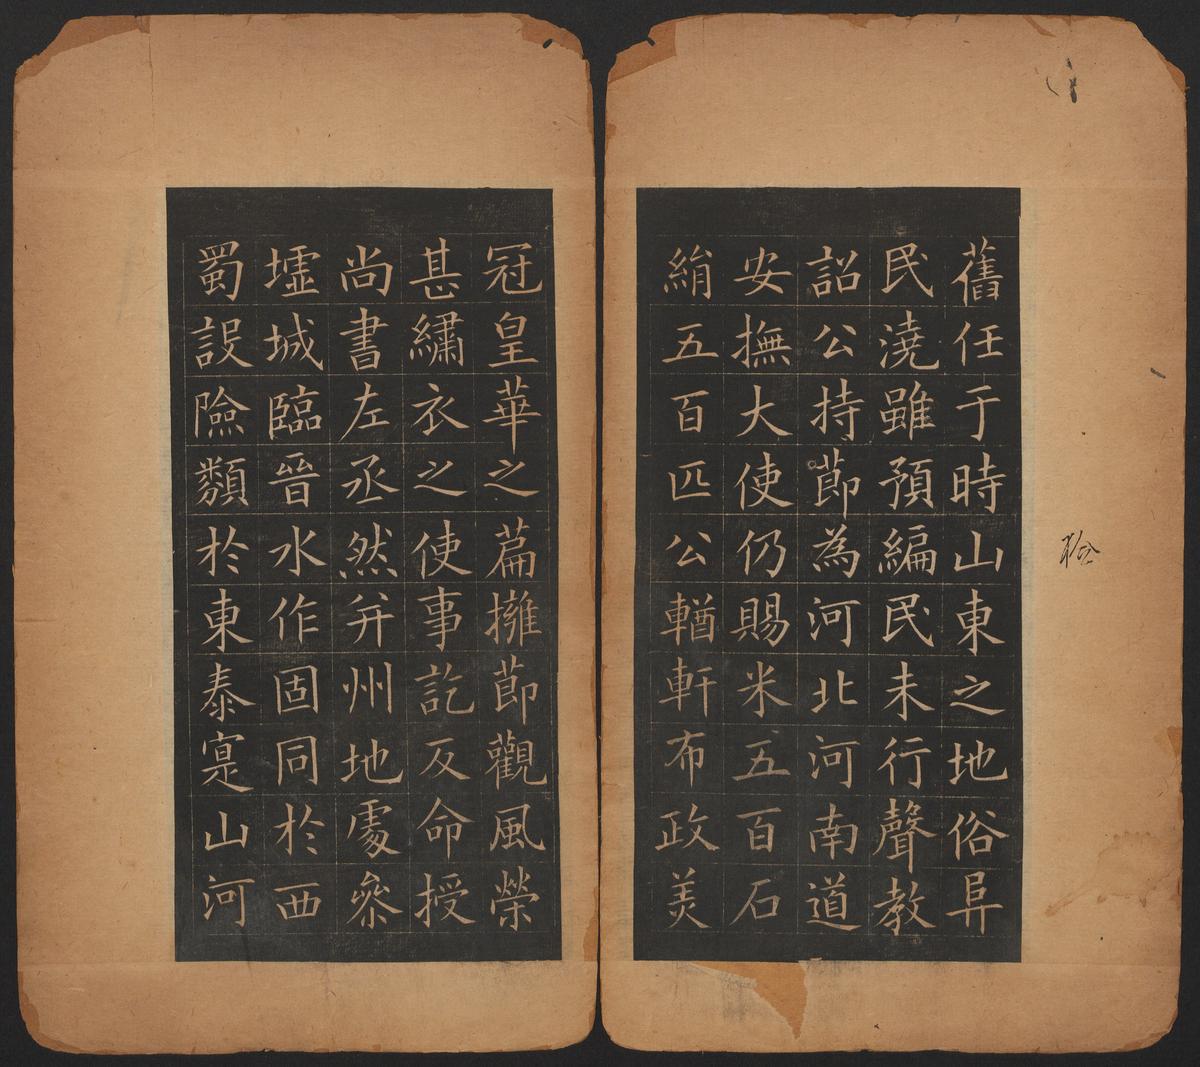 舊任于時山東之地俗阜
民澆雖預編民未行聲教
詔公持莭為河北河南道
安撫大使仍賜米五百石
絹五百匹公輶軒布政美
冠皇華之篇擁莭觀風榮
甚繡衣之使事訖反命授
尚書左丞然并州地處叅
墟城臨晉水作固同於西
蜀設險類於東泰寔山河